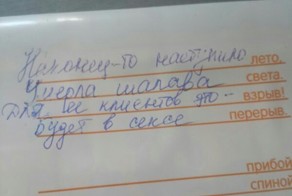 Наконец-то наступило лето.
Умерла шалава света.
Для её клиентов это -- взрыв!
Будет в сексе перерыв.
прибой
спиной